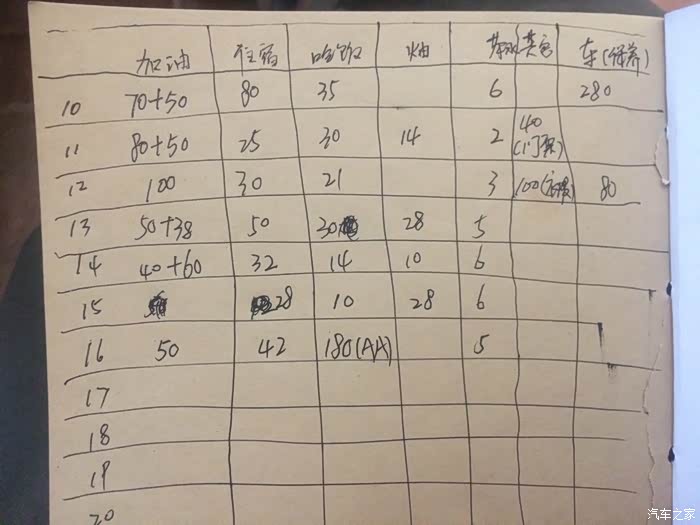 加油 住宿 吃饭 烟 其它 车(保养)
10 70+50 80 35 6 280
11 80+50 25 30 14 2 40
(门票)
12 100 30 21 3 100 80
13 50+38 50 30 28 5
14 40+60 32 14 10 6
15 28 10 28 6
16 50 42 180(AA) 5
17
18
19
20
汽车之家